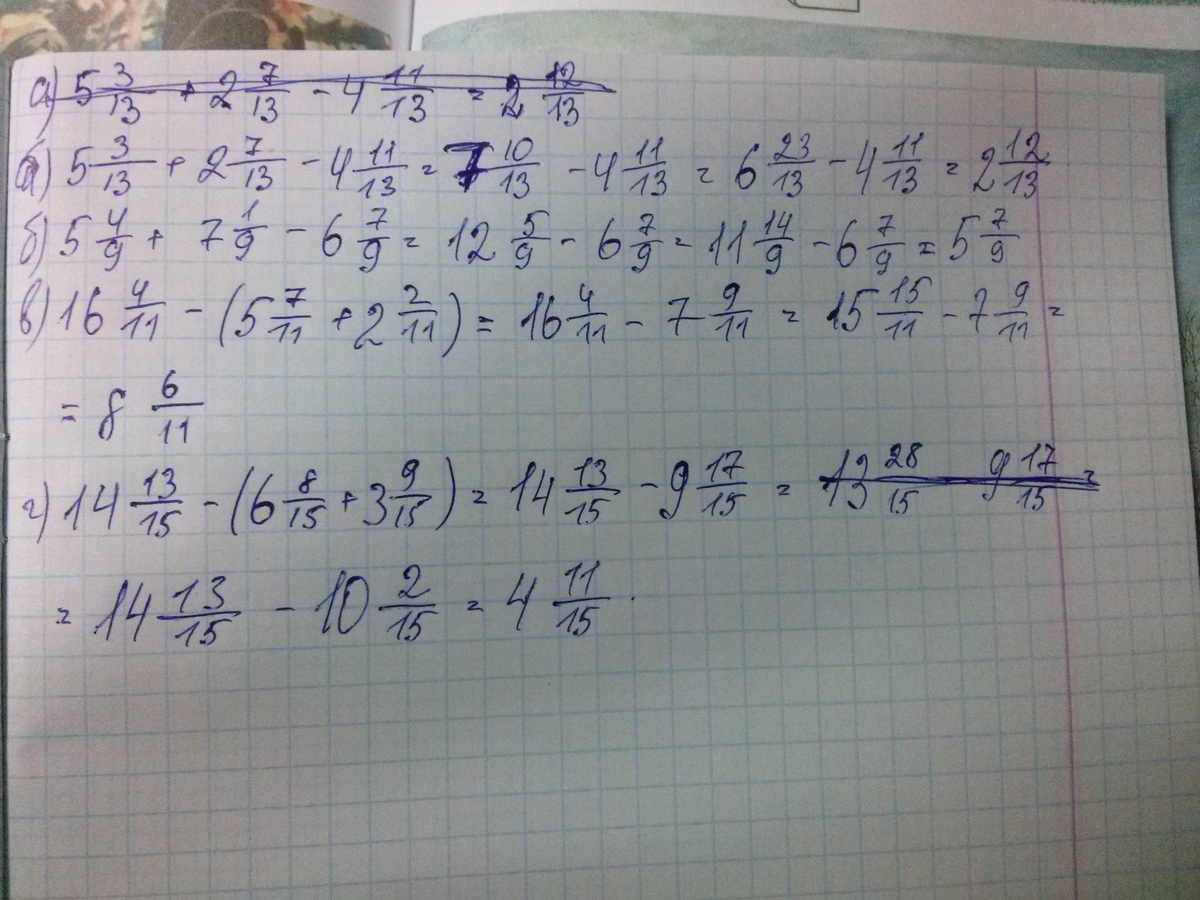 а) 5 3/13 + 2 7/13 - 4 11/13 = 2 12/13
а) 5 3/13 + 2 7/13 - 4 11/13 = 7 10/13 - 4 11/13 = 6 23/13 - 4 11/13 = 2 12/13
б) 5 4/9 + 7 1/9 - 6 7/9 = 12 5/9 - 6 7/9 = 11 14/9 - 6 7/9 = 5 7/9
в) 16 4/11 - (5 7/11 + 2 2/11) = 16 4/11 - 7 9/11 = 15 15/11 - 7 9/11 =
= 8 6/11
г) 14 13/15 - (6 8/15 + 3 9/15) = 14 13/15 - 9 17/15 = 13 28/15 9 17/15 =
= 14 13/15 - 10 2/15 = 4 11/15.